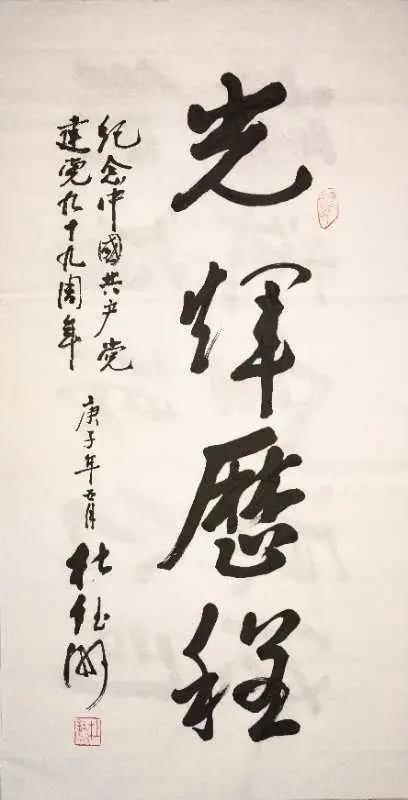 光輝歷程
紀念中國共产党
建党九十九周年
庚子年五月
杜